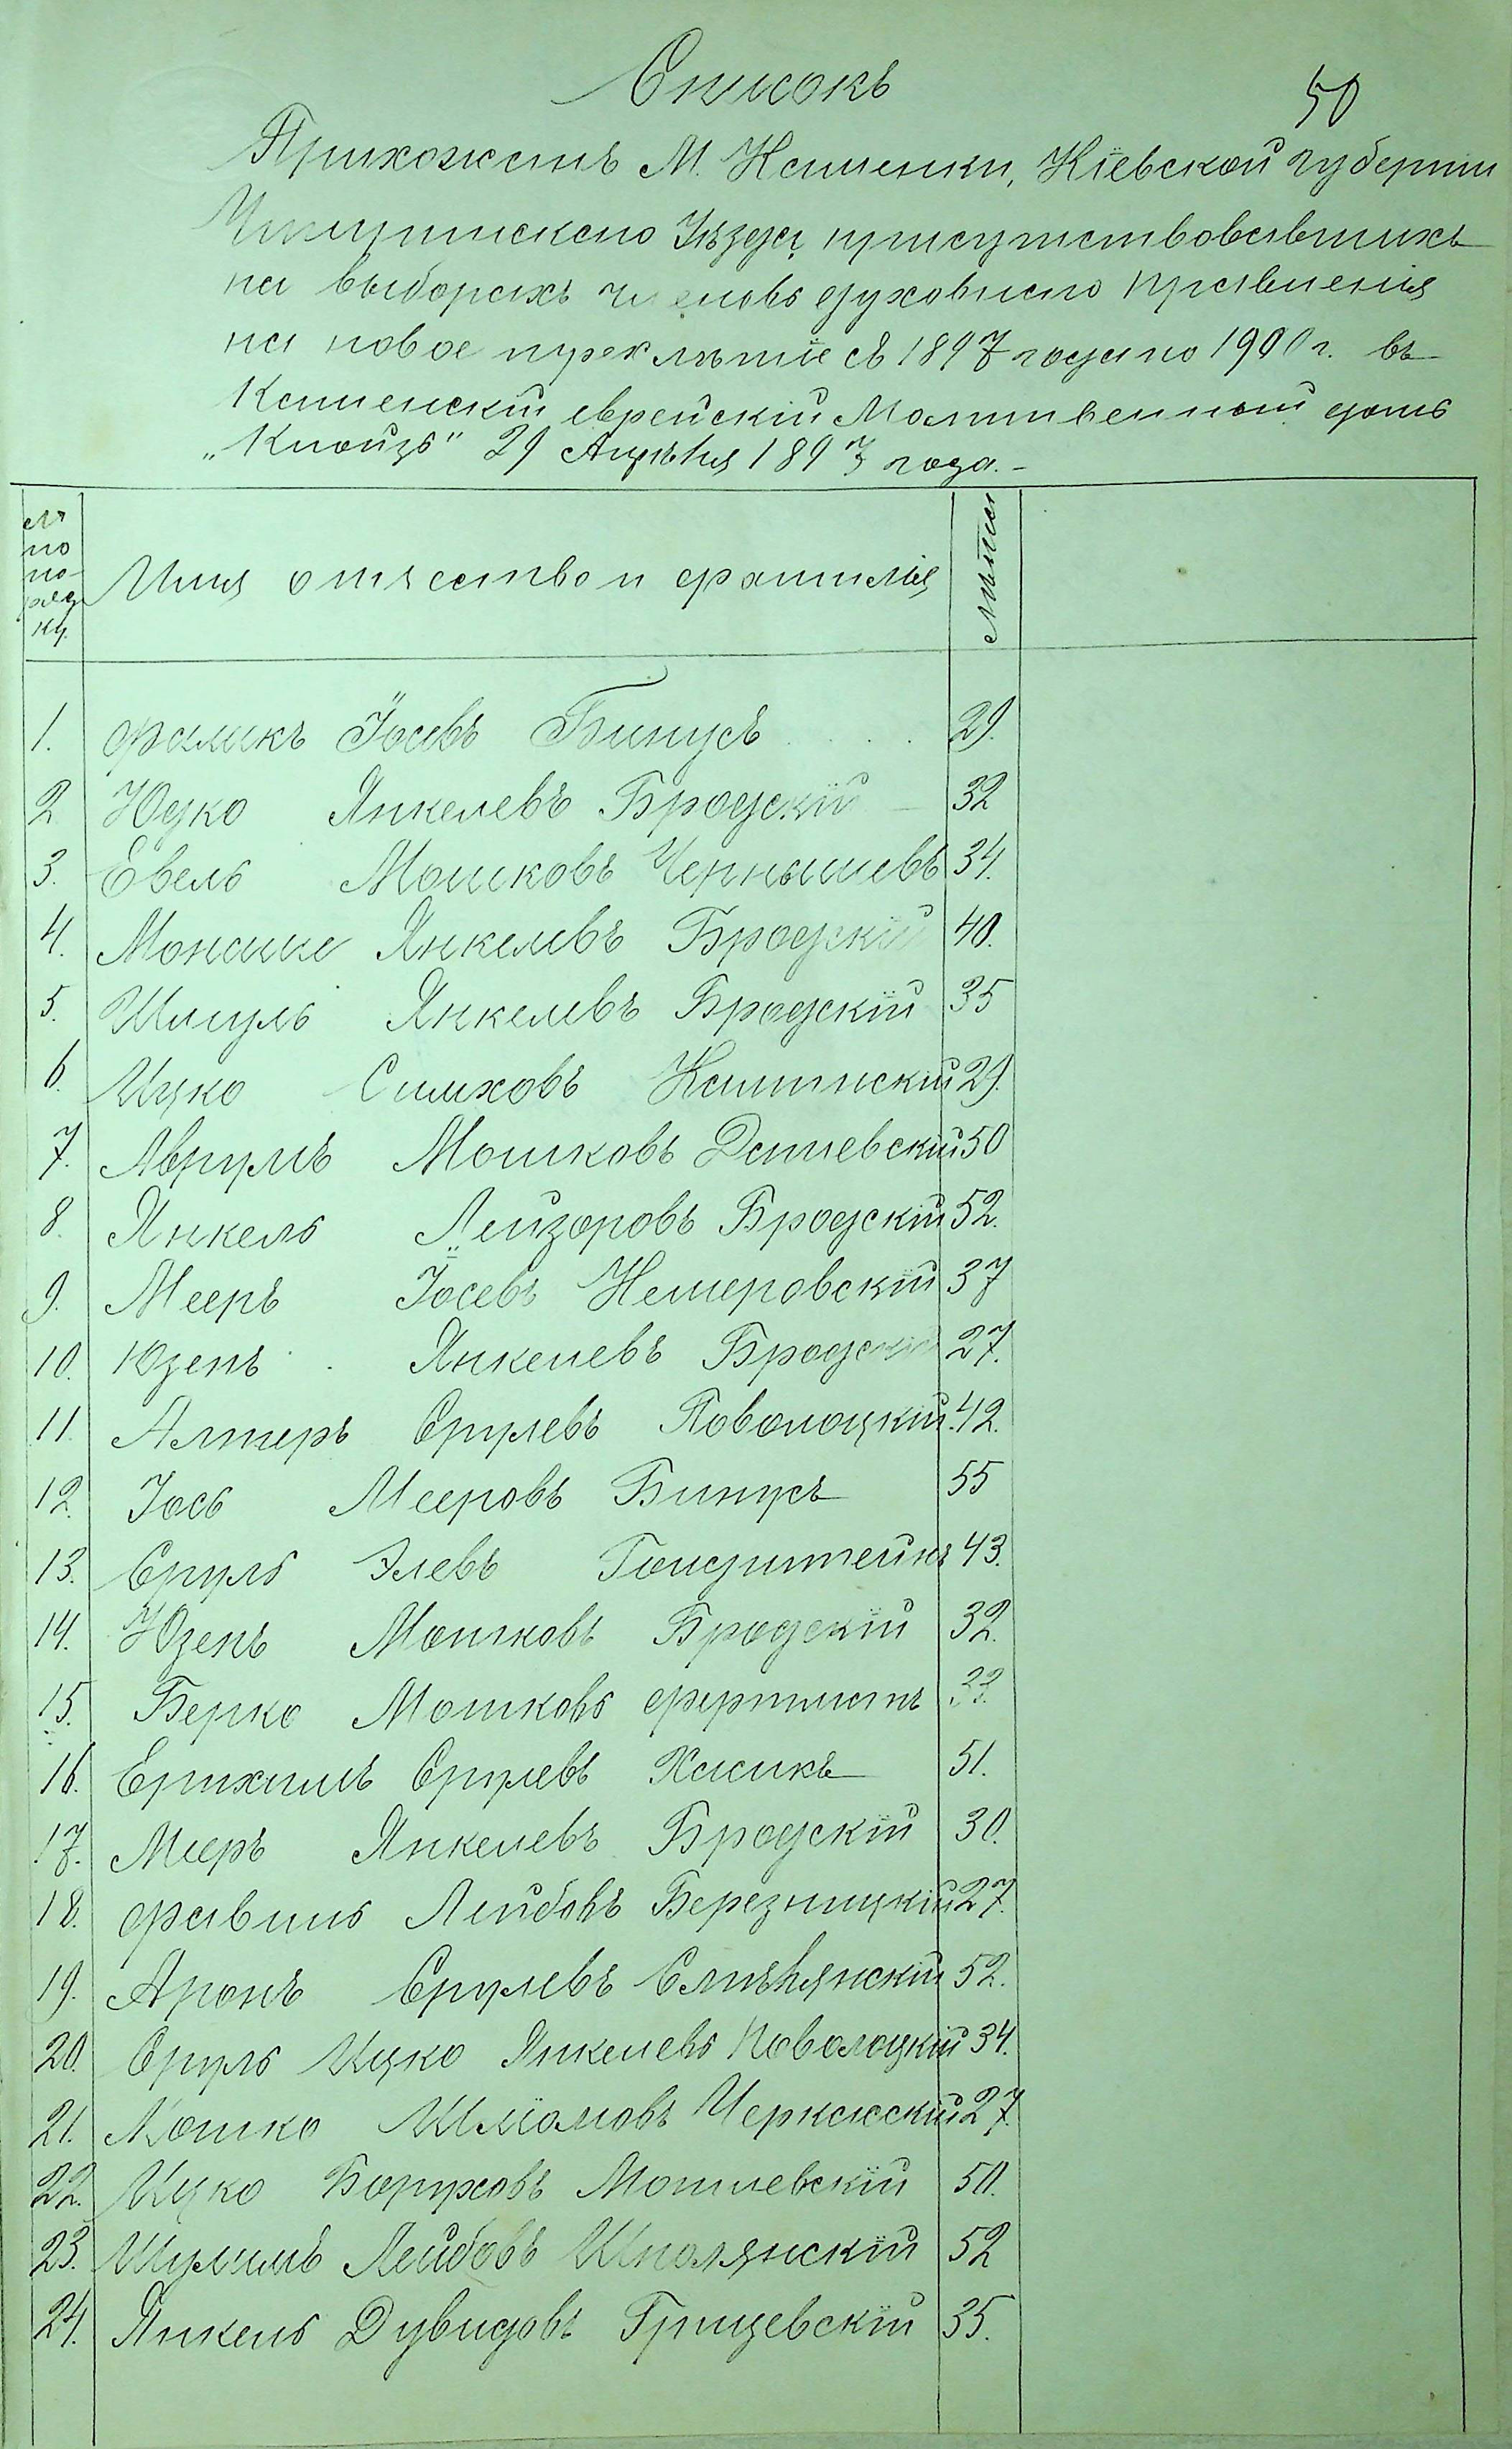 Списокъ
50
Прихожанъ М. Каменки, Кіевской губерніи
Чигиринскаго Уѣзда, присутствовавшихъ
на выборахъ членовъ духовнаго правленія
на новое трехлѣтіе съ 1897 года по 1900 г. въ
Каменскій еврейскій Молитвенный домъ
„Клойзъ" 29 Апрѣля 1897 года.-
№
по
по-
ряд
ку.
Имя отчество и фамилія
Лѣта
1. Фаликъ Іосевъ Бинусъ 29.
2 Юдко Янкелевъ Бродскій 32
3. Евель Мошковъ Чернышевъ 34.
4. Монаше Янкелевъ Бродскій 40.
5. Шмуль Янкелевъ Бродскій 35
6. Ицко Симховъ 29.
7. Аврумъ Мошковъ Дашевскій 50
8. Янкель Лейзоровъ Бродскій 52.
9. Мееръ Іосевъ Немеровскій 37
10. Юзепъ Янкелевъ Бродскій 27.
11. Алтеръ Срулевъ Поволоцкій 42.
12. Іось Мееровъ Бинусъ 55
13. Сруль Элевъ Голдштейнъ 43.
14. Юзепъ Мошковъ Бродскій 32.
15. Берко Мошковъ 33.
16. Ерихимъ Срулевъ Хасикъ 51.
17. Мееръ Янкелевъ Бродскій 30.
18. Фавишъ Лейбовъ Березницкій 27.
19. Аронъ Срулевъ Смѣлянскій 52.
20. Сруль Ицко Янкелевъ Поволоцкій 34.
21. Мошко Шліомовъ Черкасскій 27.
22. Ицко Боруховъ Могилевскій 50.
23. Шулимъ Лейбовъ Шполянскій 52
24. Янкель Дувидовъ Грищевскій 35.